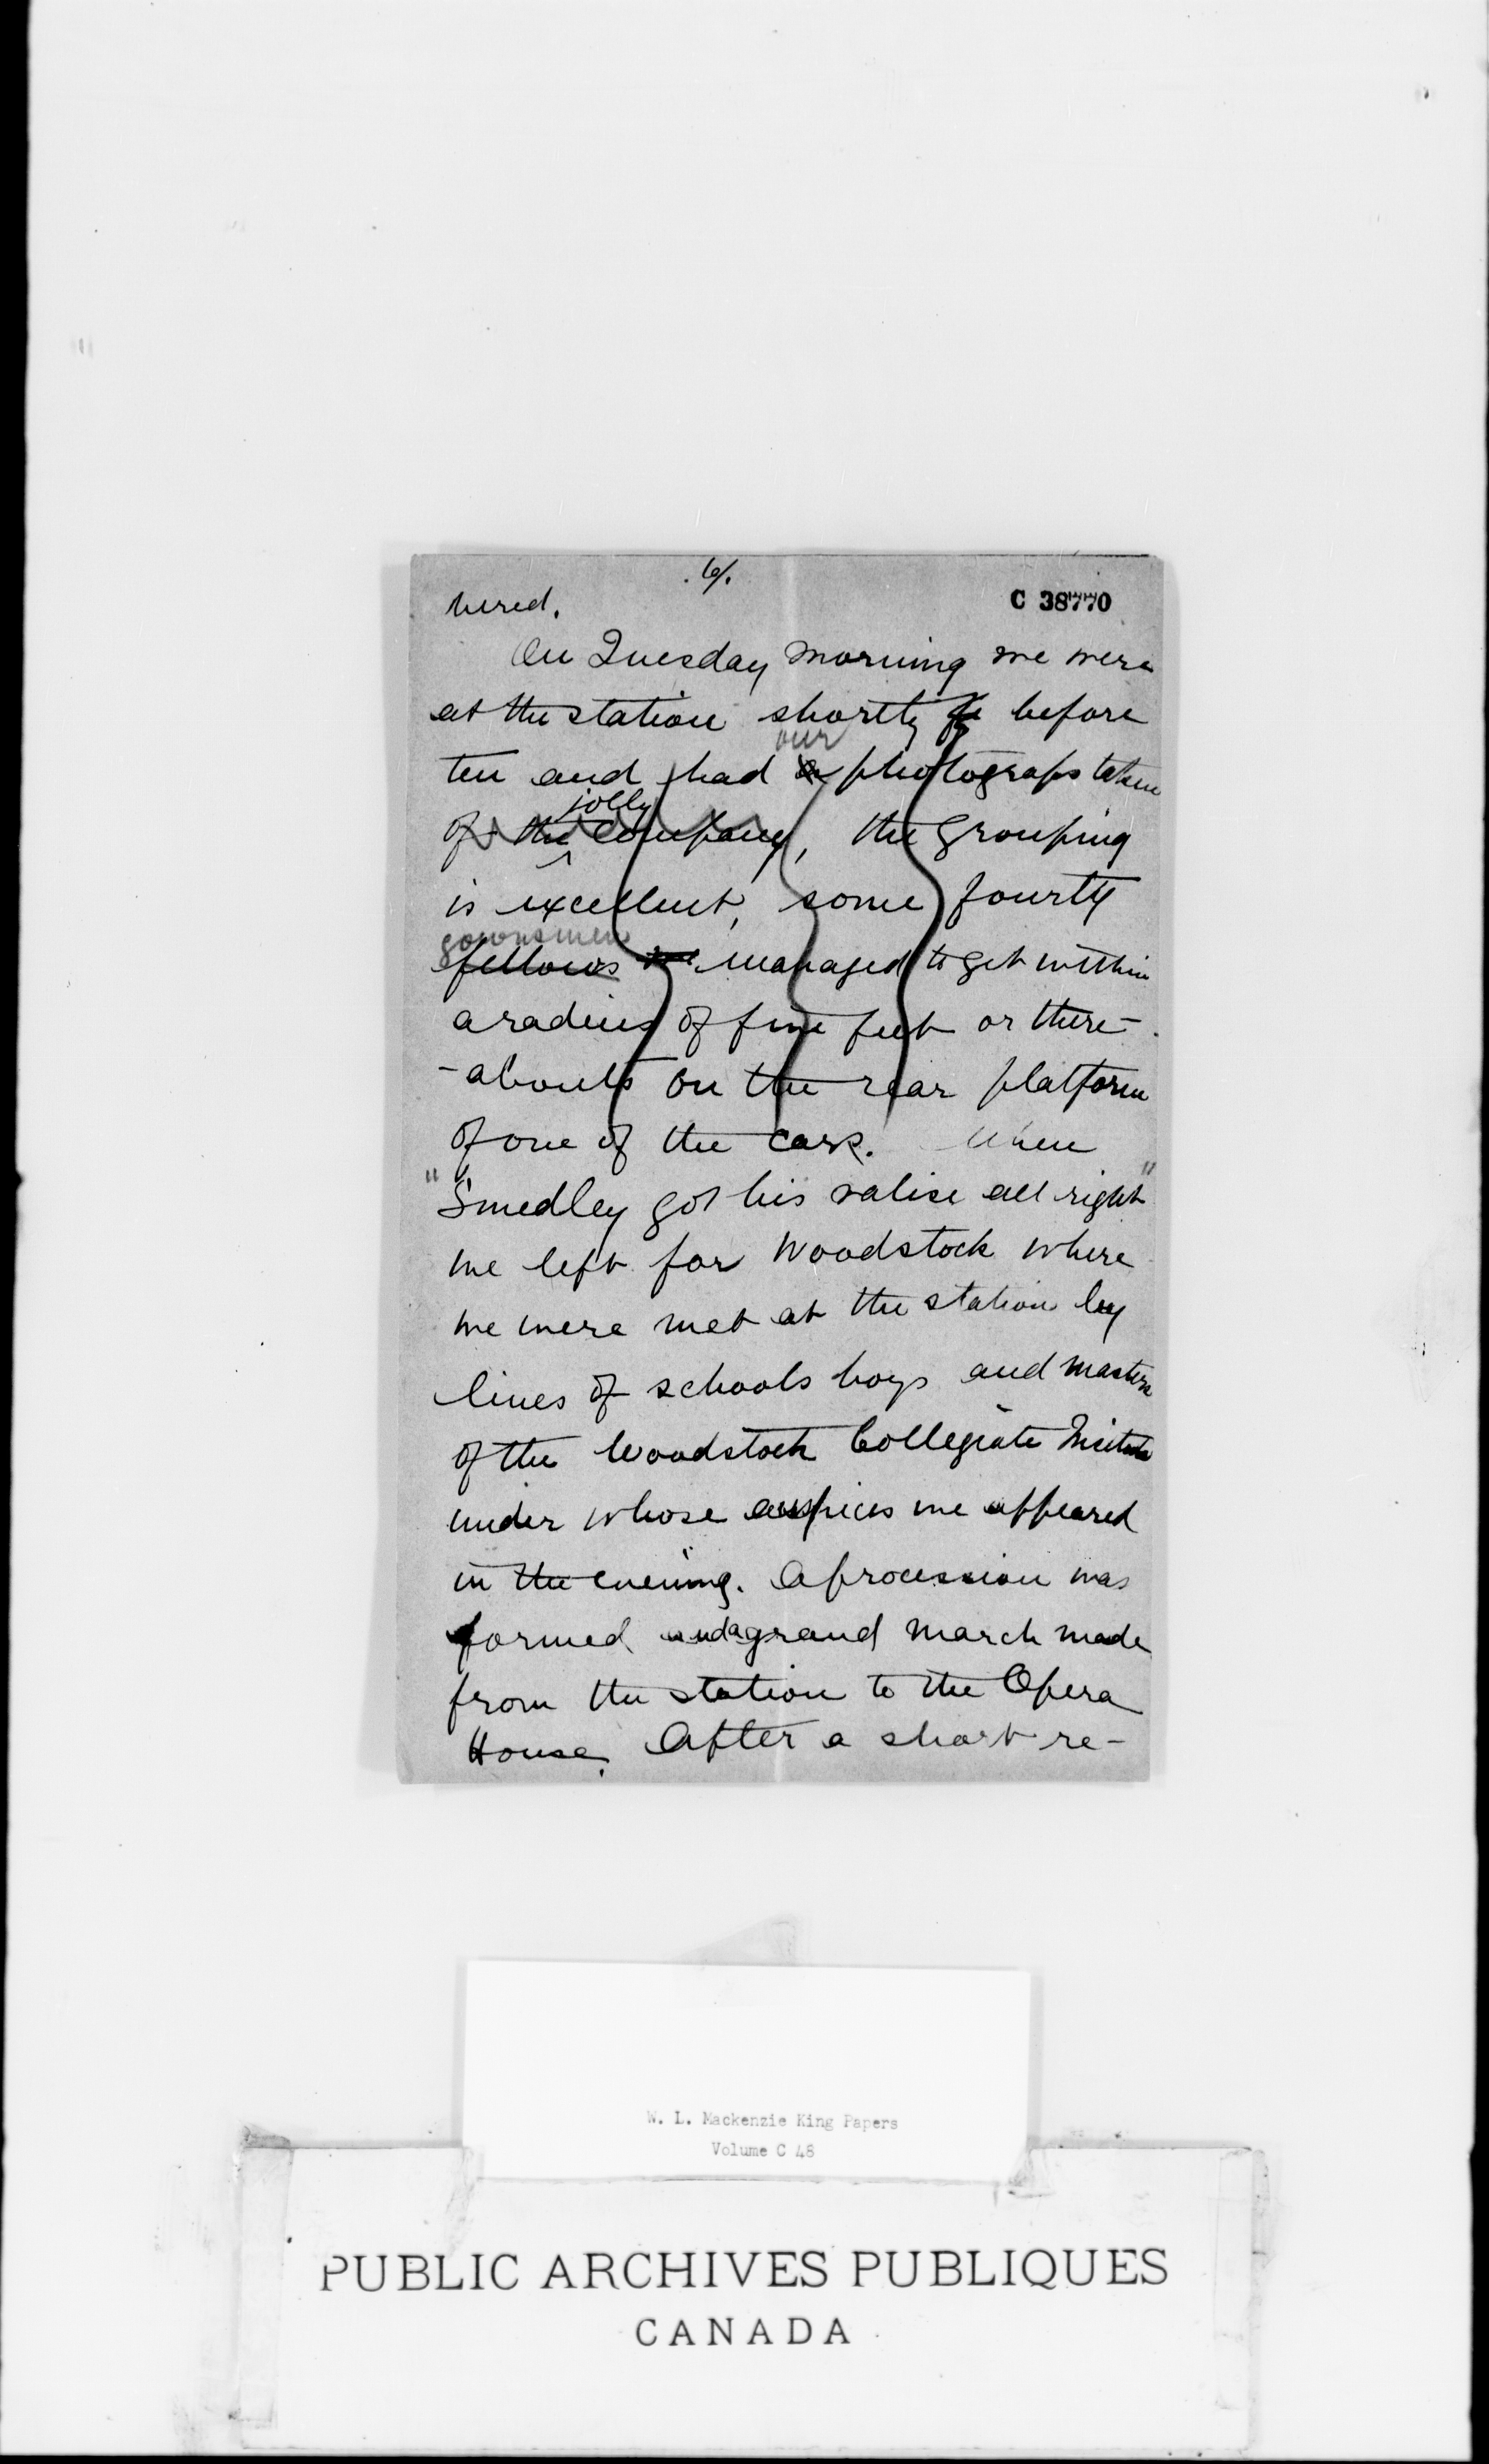 6/.
C 38770
hered.
On Tuesday morning we were
at the station shortly before
our
ten and had a photograps taken
jolly
of the company, the grouping
is excellent, some fourty
gownsmen
fellows managed to get within
a radius of five feet or there-
-abouts on the rear platform
of one of the cars. When
"Smedley got his valise all right"
we left for Woodstock where
we were met at the station by
lines of schools boys and masters
of the Woodstock Collegiate Institute
under whose auspices we appeared
in the evening. A procession was
formed and a grand march made
from the station to the Opera
House. After a short re-
W. L. Mackenzie King Papers
Volume C 48
PUBLIC ARCHIVES PUBLIQUES
CANADA